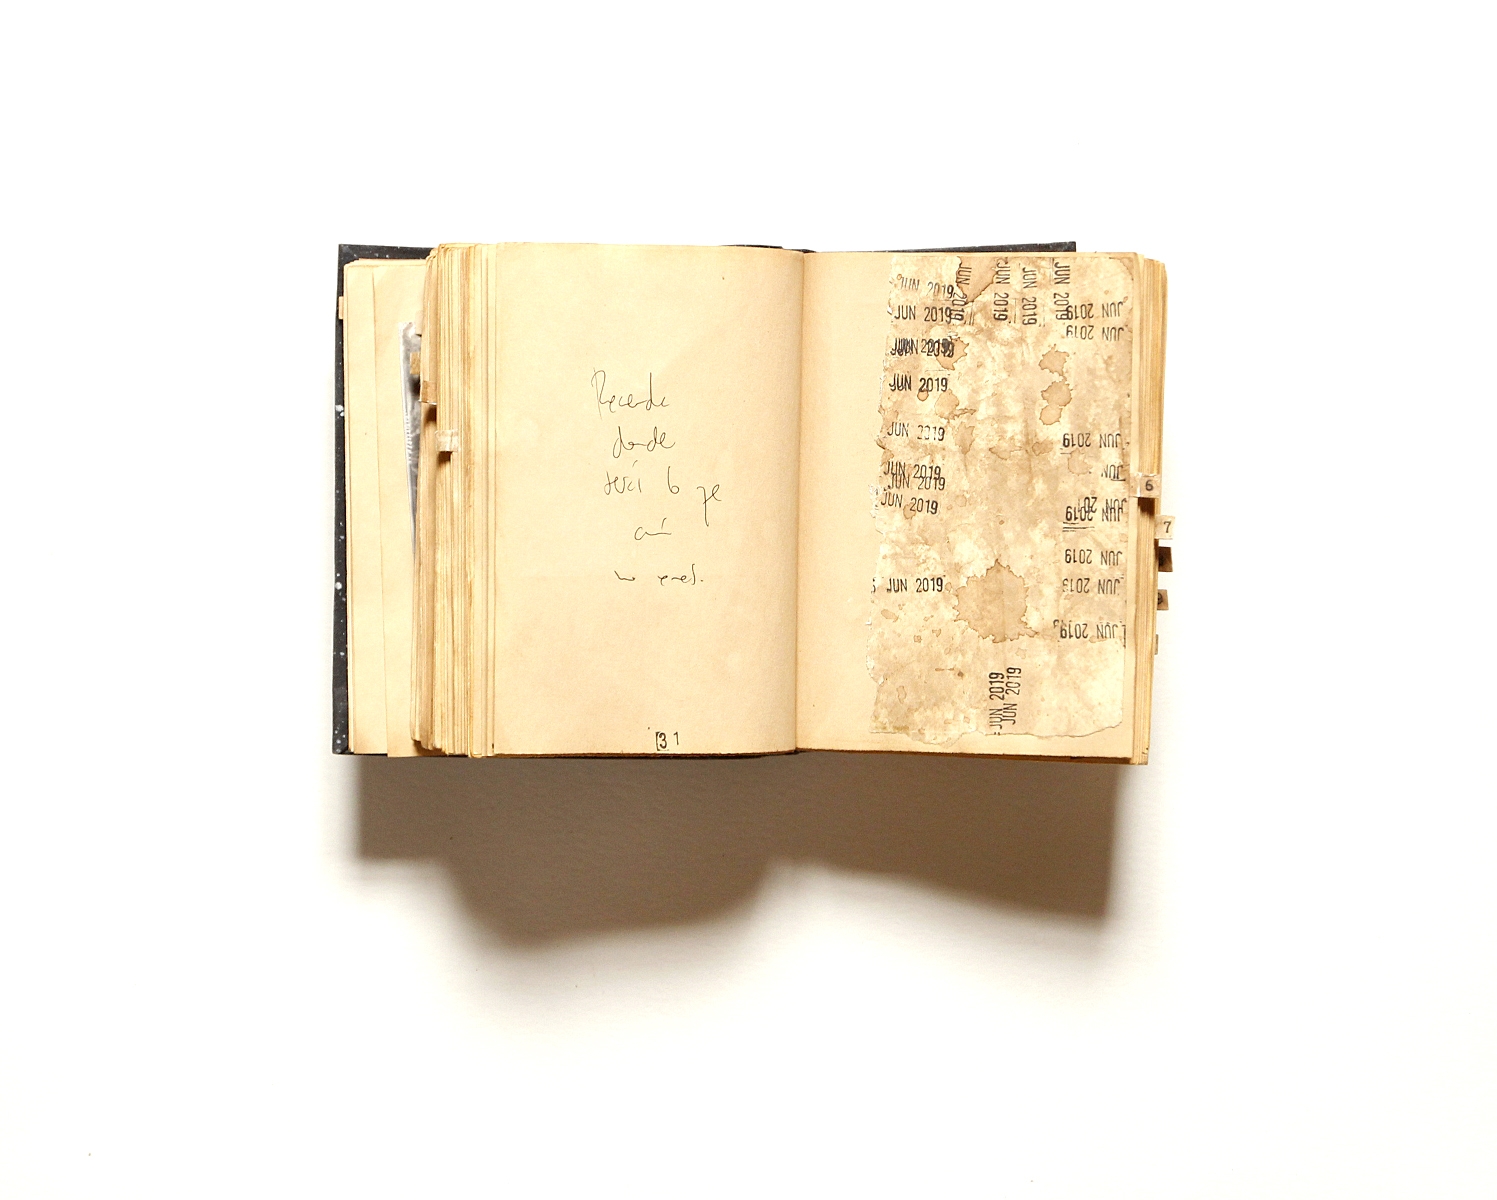 Recuerda
donde
será lo que
aún
no eres.
[31
JUN 2019
JUN 2019
JUN 2019
JUN 2019
JUN 2019
JUN 2019
JUN 2019
JUN 2019
JUN 2019
JUN 2019
JUN 2019
JUN 2019
JUN 2019
JUN 2019
JUN 2019
JUN 2019
JUN 2019
JUN
JUN 201
JUN 2019
JUN 2019
JUN 2019
JUN 2019
JUN 2019
JUN 2019
6
7